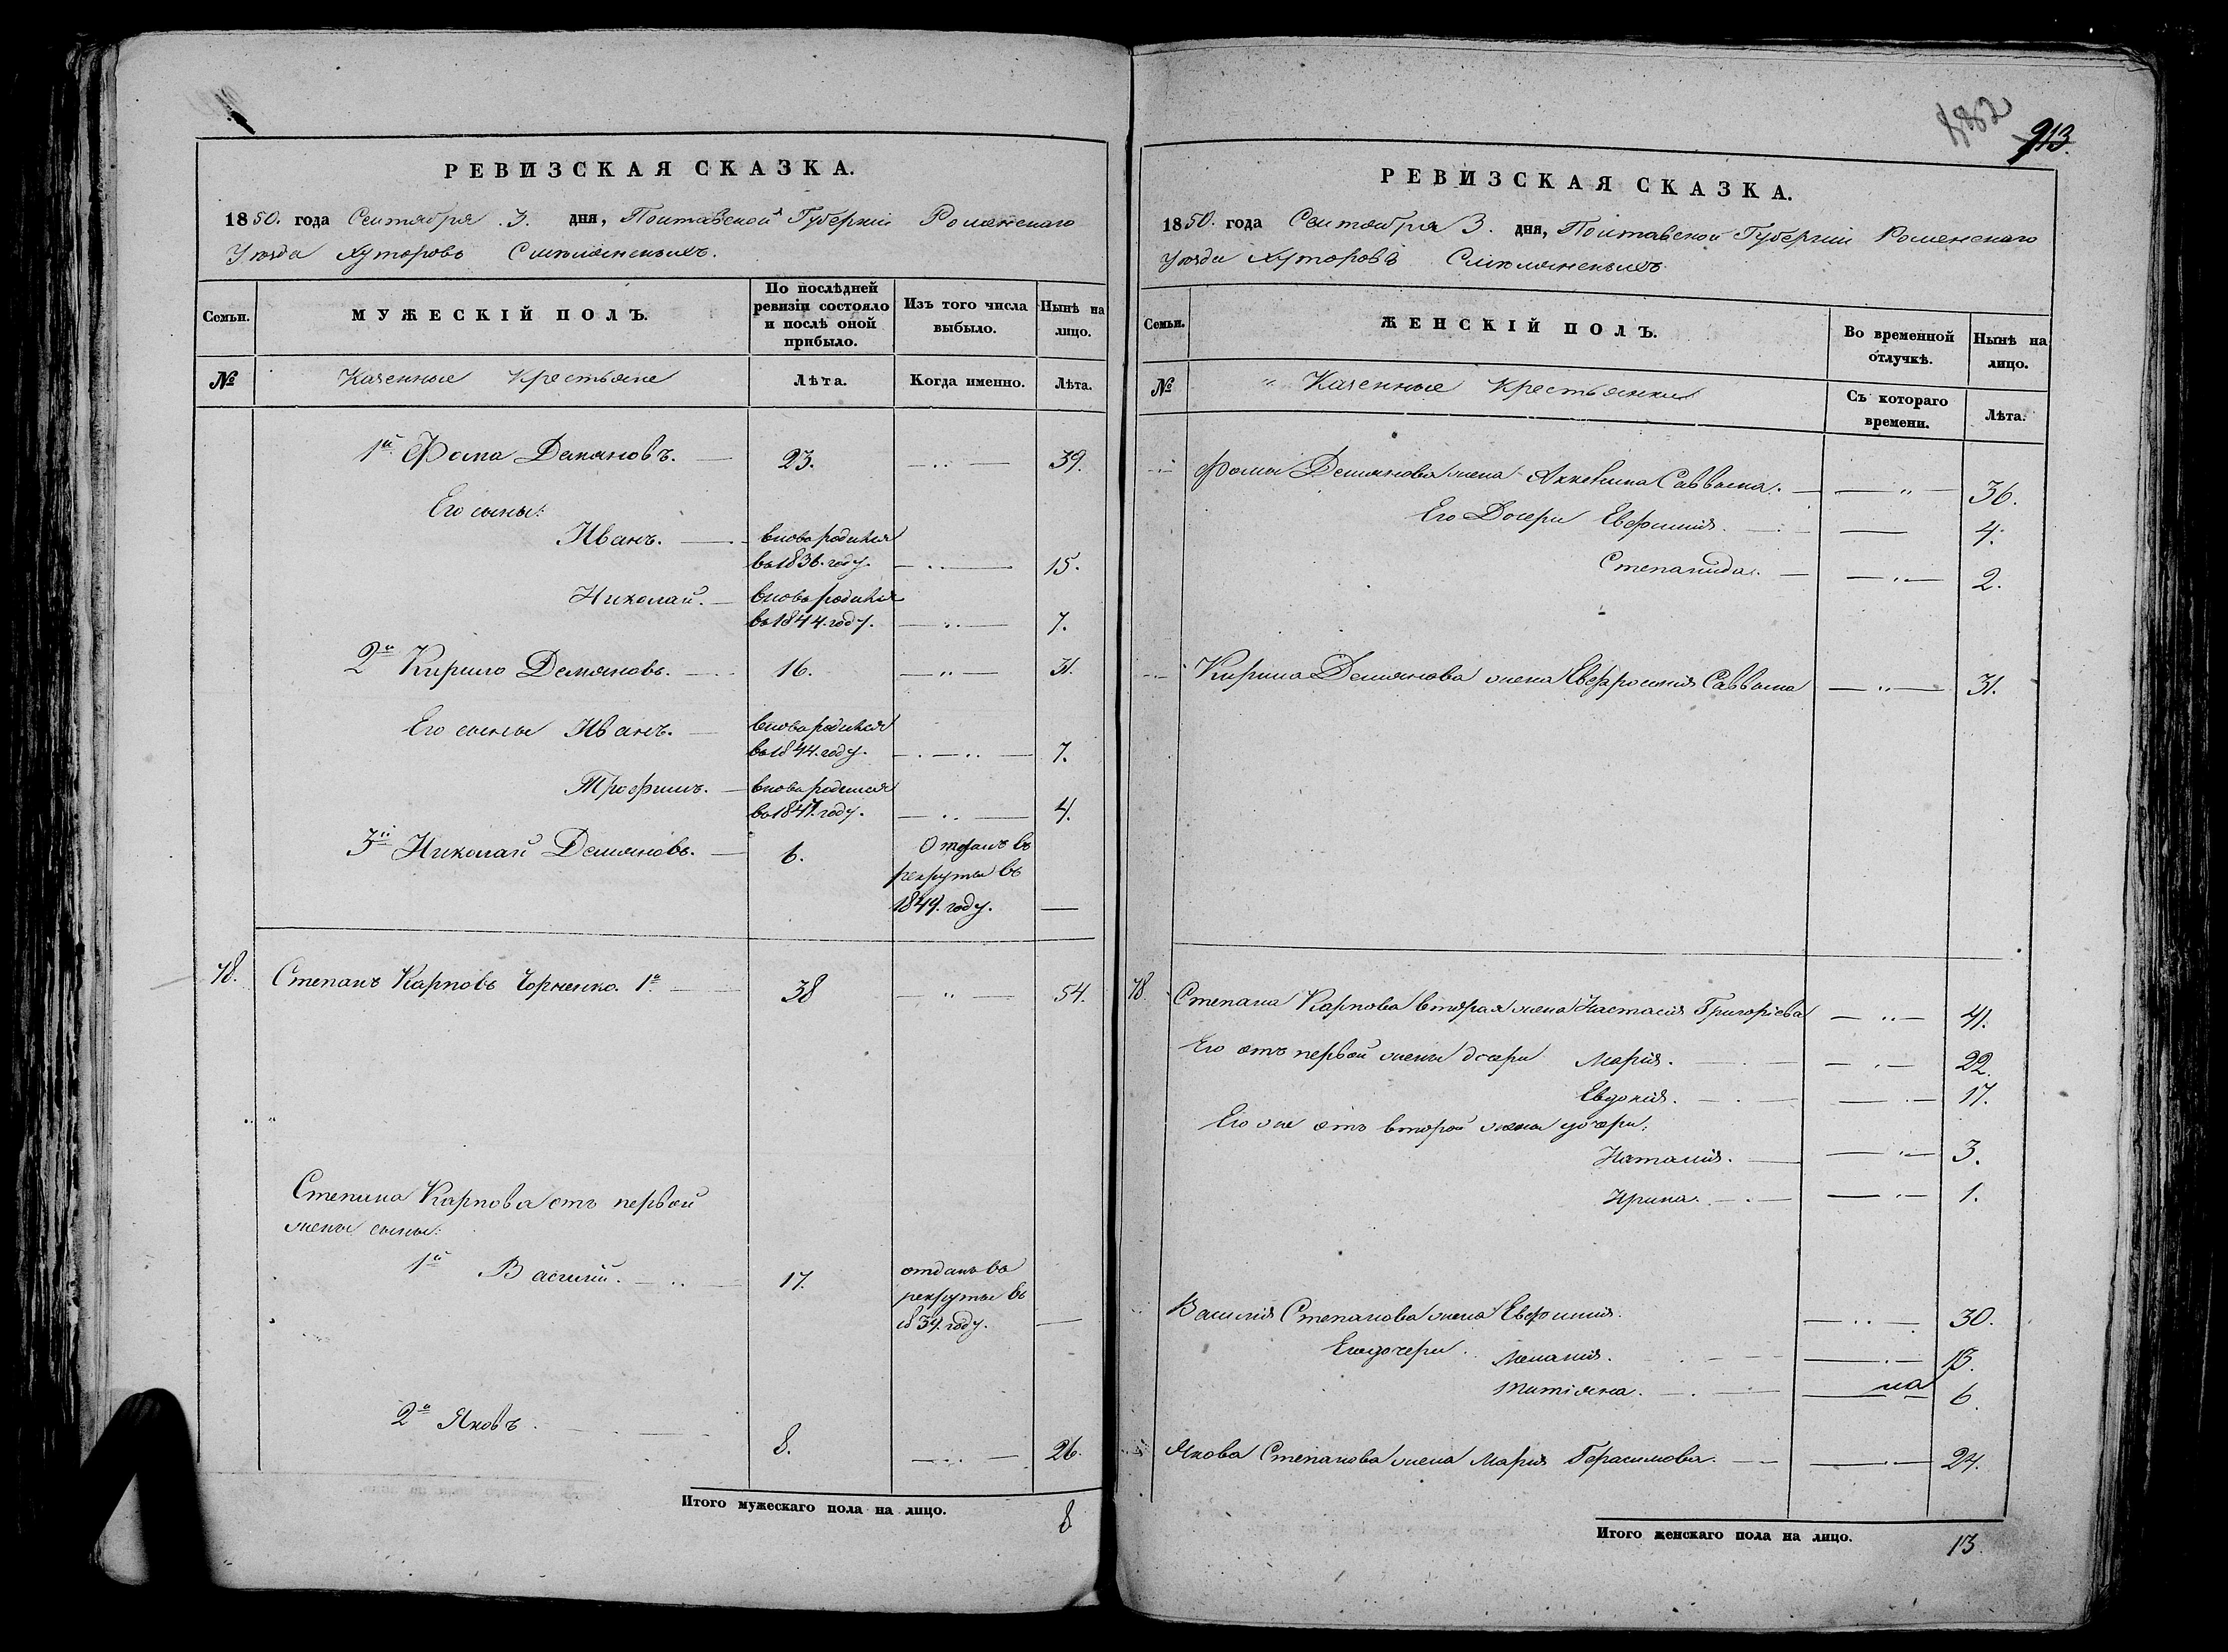 РЕВИЗСКАЯ СКАЗКА.
1850. года Сентября 3. дня, Полтавской Губернии Роменскаго
Уезда Хуторовъ
Семьи.
МУЖЕСКІЙ ПОЛЪ.
По послѣдней ревизіи состояло и послѣ оной прибыло.
Изъ того числа выбыло.
Нынѣ на лицо.
№
Казенные Крестьяне
Лѣта.
Когда именно.
Лѣта.
1й Фома Демяновъ. — 23. — „ — 39.
Его сыны:
Иванъ. — вновь родился
въ 1836. году. — „ — 15.
Николай. — вновь родился
въ 1844. году. — „ — 7.
2й Кирило Демяновъ. — 16. — „ — 31.
Его сыны Иванъ. — вновь родился
въ 1844. году. — „ — 7.
Трофимъ. — вновь родился
въ 1847. году. — „ — 4.
3й Николай Демяновъ. — 6. Отданъ въ
рекруты въ
1849. году. —
78. Степанъ Карповъ Чорненко. 1й — 38 — „ — 54.
Степана Карпова отъ первой
жены сыны:
1й Василій. — 17. отданъ въ
рекруты въ
1839. году. —
2й Яковъ. 8. — „ — 26.
Итого мужескаго пола на лицо. 8
882
913.
РЕВИЗСКАЯ СКАЗКА.
1850. года Сентября 3. дня, Полтавской Губерніи Роменскаго
Уезда Хуторовъ
Семьи.
ЖЕНСКІЙ ПОЛЪ.
Во временной отлучкѣ.
Нынѣ на лицо.
№
Казенные Крестьянки
Съ котораго времени.
Лѣта.
Фомы Демянова жена Саввина. — „ — 36.
Его Дочери Евфимія. — 4.
Степанида. — „ — 2.
Кирила Демянова жена Евфросинія Саввина — „ — 31.
78. Степана Карпова вторая жена Настасія Григоріева — „ — 41.
Его отъ первой жены дочери Марія. — „ — 22.
Евдокія. — „ — 17.
Его же отъ второй жены дочери:
Наталія. — „ — 3.
Ирина. — „ — 1.
Василія Степанова жена Евфимія. — „ — 30.
Его дочери Меланія. — „ — 13.
Титіяна. — 6.
Якова Степанова жена Марія Герасимова. — „ — 24.
Итого женскаго пола на лицо. 13.